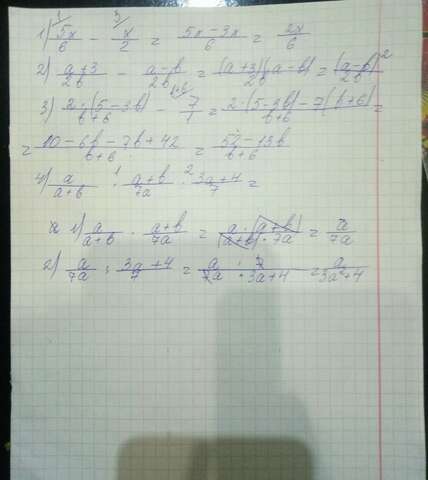 1) 5x/6 - x/2 = 5x-3x/6 = 2x/6
2) a+3/2b - a-b/2b = (a+3)(a-b)/2b = (a-b)²/2b
3) 2·(5-3b)/b+6 - 7/1 = 2·(5-3b)-7(b+6)/b+6 =
= 10-6b-7b+42/b+6 = 52-13b/b+6
4) a/a+b · a+b/7a : 3a+4/7 =
1) a/a+b · a+b/7a = a·(a+b)/(a+b)·7a = a/7a
2) a/7a : 3a+4/7 = a·7/7a·3a+4 = a/3a²+4